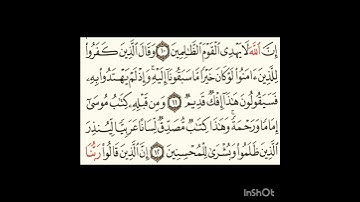 إِنَّ ٱللَّهَ لَا يَهْدِى ٱلْقَوْمَ ٱلظَّٰلِمِينَ ١٠ وَقَالَ ٱلَّذِينَ كَفَرُوا۟
لِلَّذِينَ ءَامَنُوا۟ لَوْ كَانَ خَيْرًا مَّا سَبَقُونَآ إِلَيْهِ ۚ وَإِذْ لَمْ يَهْتَدُوا۟ بِهِۦ
فَسَيَقُولُونَ هَٰذَآ إِفْكٌ قَدِيمٌ ١١ وَمِن قَبْلِهِۦ كِتَٰبُ مُوسَىٰٓ
إِمَامًا وَرَحْمَةً ۚ وَهَٰذَا كِتَٰبٌ مُّصَدِّقٌ لِّسَانًا عَرَبِيًّا لِّيُنذِرَ
ٱلَّذِينَ ظَلَمُوا۟ وَبُشْرَىٰ لِلْمُحْسِنِينَ ١٢ إِنَّ ٱلَّذِينَ قَالُوا۟ رَبُّنَا
InShOt